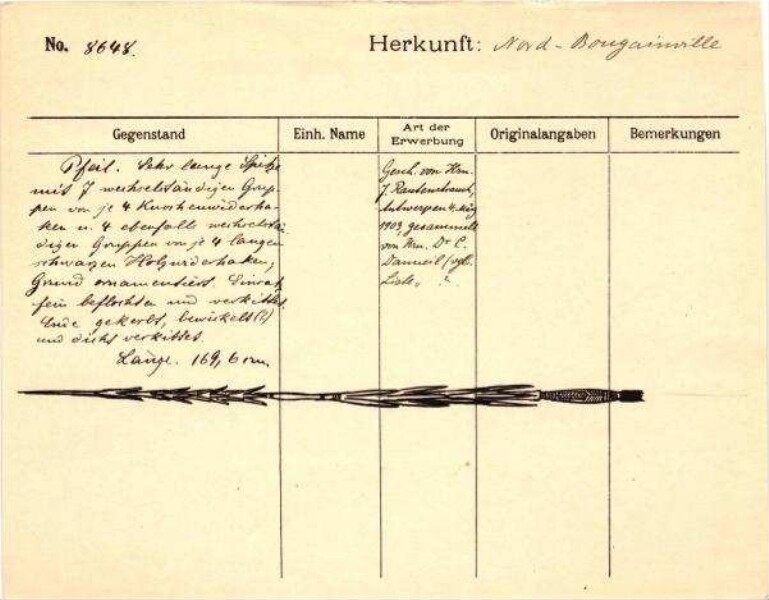 No. 8648.
Herkunft: Nord-Bougainville
Gegenstand
Einh. Name
Art der Erwerbung
Originalangaben
Bemerkungen
Pfeil. Sehr lange Spitze
mit 7 wechselständigen Grup-
pen von je 4 Knochenwiderha-
ken u. 4 ebenfalls wechselstän-
digen Gruppen von je 4 langen
schwarzen Holzwiderhaken,
Grund ornamentiert. Einsatz
fein beflochten und verkittet.
Ende gekerbt, bewickelt(?)
und dicht verkittet.
Länge. 169,6 cm.
Gesch. von Hrn.
J. Rautenstrauch,
Antwerpen 4. Mai
1903, gesammelt
von Hrn. Dr C.
Danneil (vgl.
Liste,